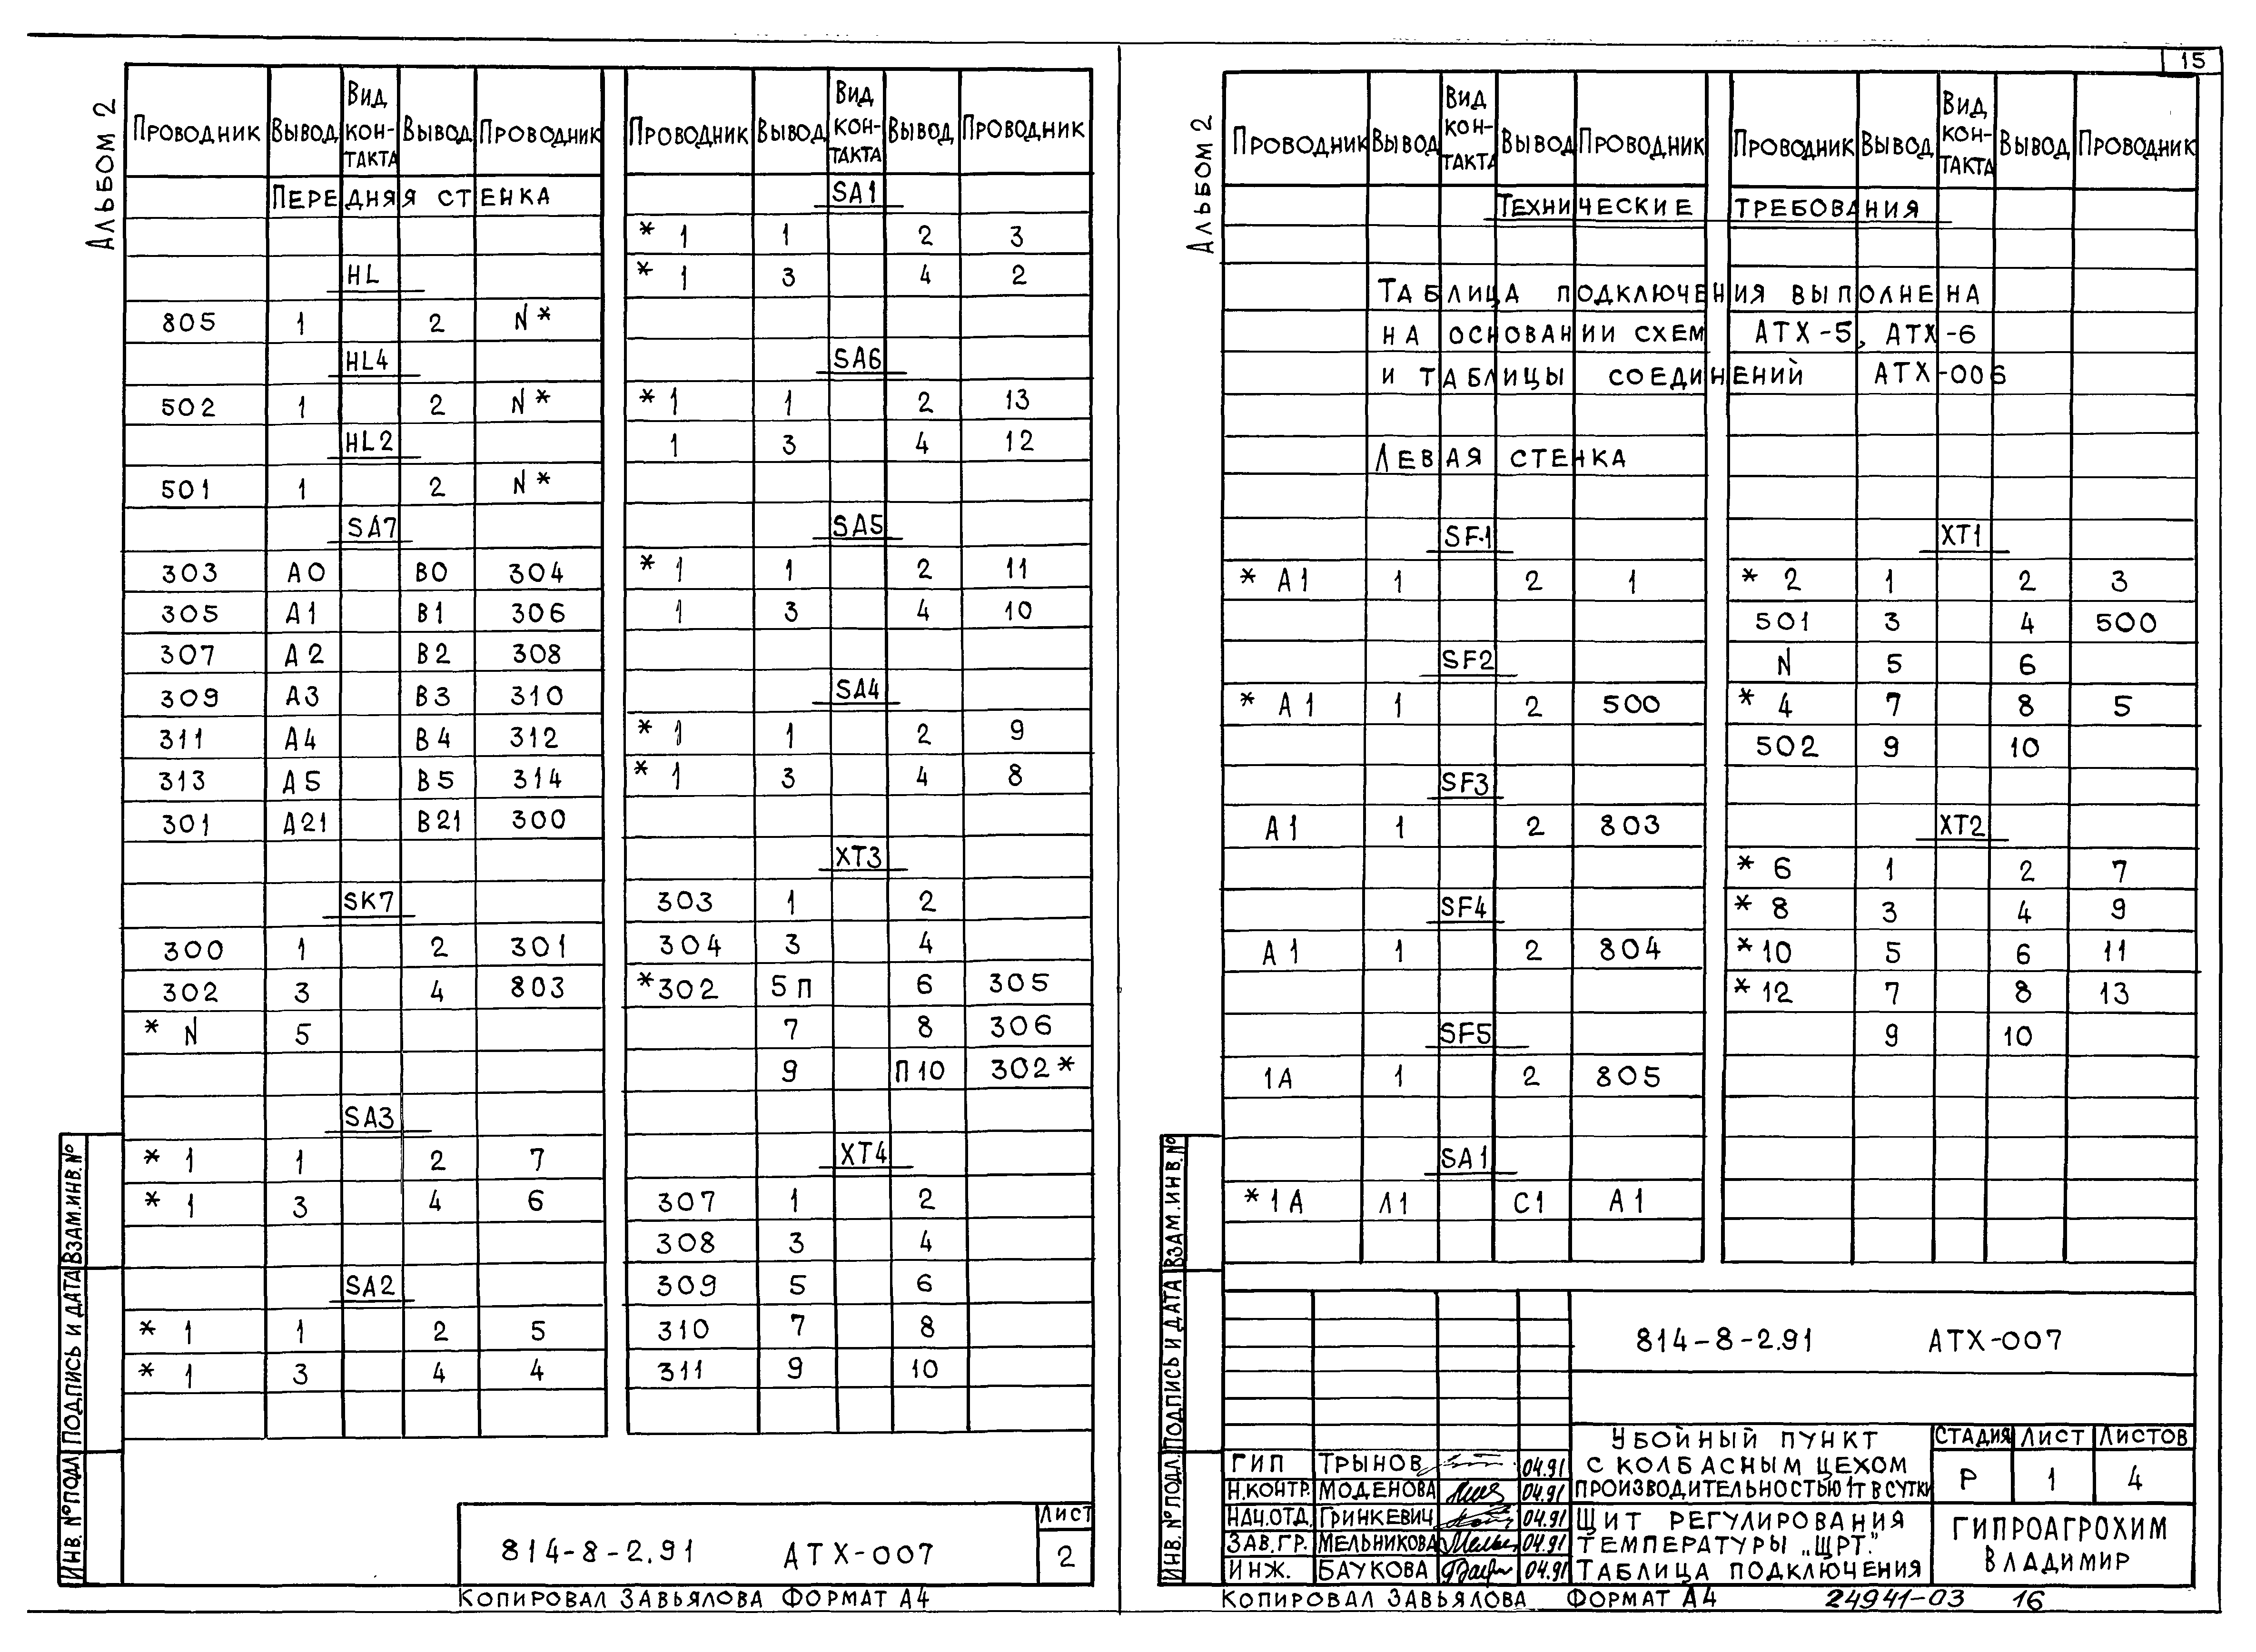 15
Альбом 2
Проводник Вывод Вид контакта Вывод Проводник
Передняя стенка
HL
805 1 2 N*
HL4
502 1 2 N*
HL2
501 1 2 N*
SA7
303 А0 В0 304
305 А1 В1 306
307 А2 В2 308
309 А3 В3 310
311 А4 В4 312
313 А5 В5 314
301 А21 В21 300
SK7
300 1 2 301
302 3 4 803
* N 5
SA3
* 1 1 2 7
* 1 3 4 6
SA2
* 1 1 2 5
* 1 3 4 4
Проводник Вывод Вид контакта Вывод Проводник
SA1
* 1 1 2 3
* 1 3 4 2
SA6
* 1 1 2 13
1 3 4 12
SA5
* 1 1 2 11
1 3 4 10
SA4
* 1 1 2 9
* 1 3 4 8
XT3
303 1 2
304 3 4
*302 5П 6 305
7 8 306
9 П10 302*
XT4
307 1 2
308 3 4
309 5 6
310 7 8
311 9 10
Инв. № подл. Подпись и дата Взам.инв.№
814-8-2.91 АТХ-007
Лист
2
Копировал Завьялова Формат А4
Альбом 2
Проводник Вывод Вид контакта Вывод Проводник
Проводник Вывод Вид контакта Вывод Проводник
Технические требования
Таблица подключения выполнена
на основании схем АТХ-5, АТХ-6
и таблицы соединений АТХ-006
Левая стенка
SF1
* А1 1 2 1
SF2
* А1 1 2 500
SF3
А1 1 2 803
SF4
А1 1 2 804
SF5
1А 1 2 805
SA1
*1А Л1 С1 А1
XT1
* 2 1 2 3
501 3 4 500
N 5 6
* 4 7 8 5
502 9 10
XT2
* 6 1 2 7
* 8 3 4 9
*10 5 6 11
*12 7 8 13
9 10
Инв. № подл. Подпись и дата Взам.инв.№
814-8-2.91 АТХ-007
ГИП Трынов 04.91
Н.контр. Моденова 04.91
Нач.отд. Гринкевич 04.91
Зав.гр. Мельникова 04.91
Инж. Баукова 04.91
Убойный пункт
с колбасным цехом
производительностью 1т в сутки
Щит регулирования
температуры „ЩРТ."
Таблица подключения
Стадия Лист Листов
Р 1 4
Гипроагрохим
Владимир
Копировал Завьялова Формат А4 24941-03 16